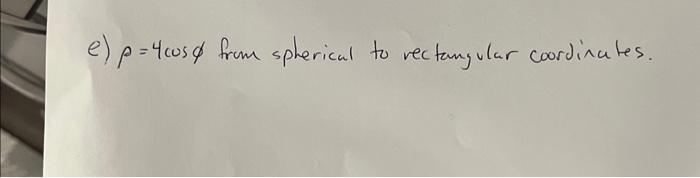 e) ρ = 4cosϕ from spherical to rectangular coordinates.